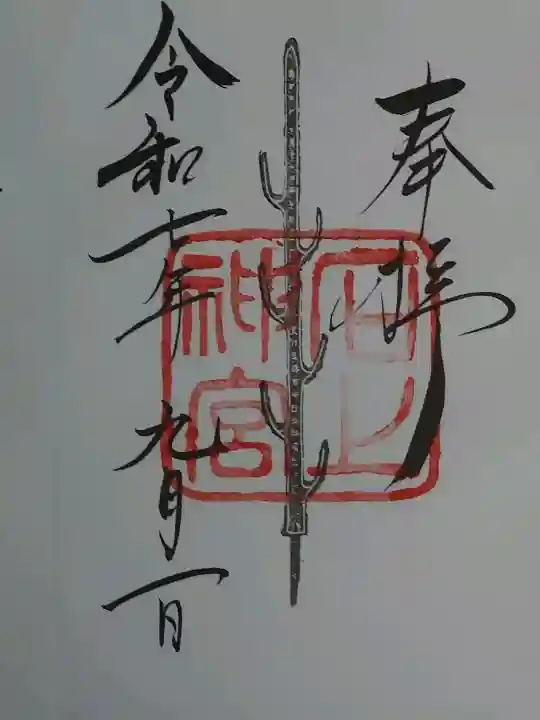 奉拝
石上
神宮
令和七年 九月一日